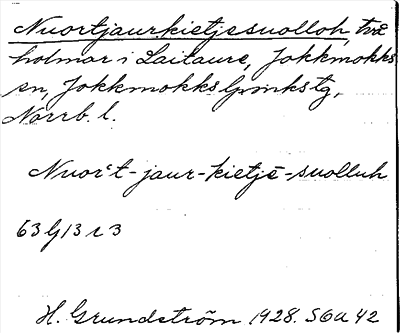 Nuortjaurkietjesuolloh, två
holmar i Laitaure, Jokkmokks
sn, Jokkmokks lpmkstg,
Norrb. l.
Nuor't-jaur-kietjē-suolluh
63 b/13 r 3
H. Grundström 1928. S6a 42